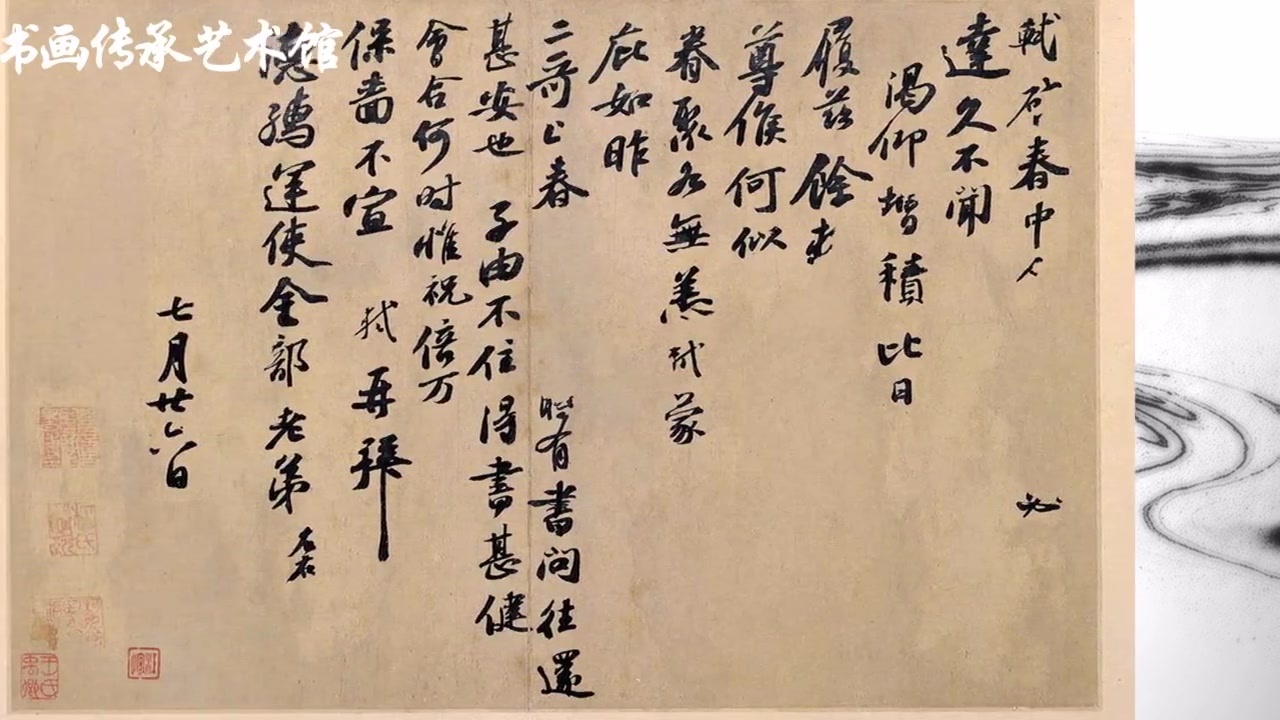 书画传承艺术馆
軾啓春中人必
達久不聞
渴仰增積比日
履茲餘
尊候何似
眷聚各無恙軾蒙
庇如昨
二哥上春時有書問往還
甚安也子由不住得書甚健
會合何時惟祝倍万
保嗇不宣軾再拜
德孺運使金部老弟左右
七月廿六日